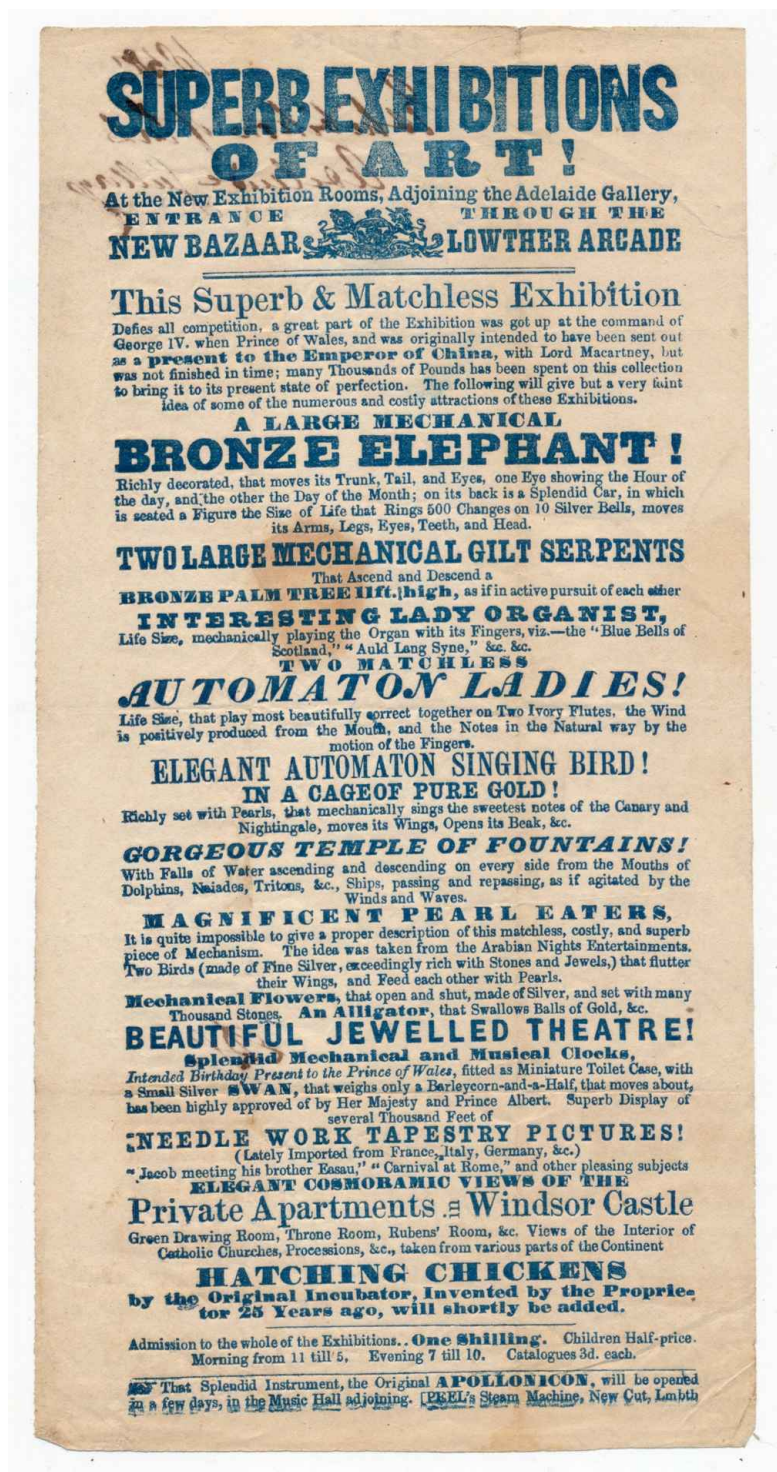 SUPERB EXHIBITIONS
OF ART!
At the New Exhibition Rooms, Adjoining the Adelaide Gallery,
ENTRANCE THROUGH THE
NEW BAZAAR LOWTHER ARCADE
This Superb & Matchless Exhibition
Defies all competition, a great part of the Exhibition was got up at the command of
George IV. when Prince of Wales, and was originally intended to have been sent out
as a present to the Emperor of China, with Lord Macartney, but
was not finished in time; many Thousands of Pounds has been spent on this collection
to bring it to its present state of perfection. The following will give but a very faint
idea of some of the numerous and costly attractions of these Exhibitions.
A LARGE MECHANICAL
BRONZE ELEPHANT!
Richly decorated, that moves its Trunk, Tail, and Eyes, one Eye showing the Hour of
the day, and the other the Day of the Month; on its back is a Splendid Car, in which
is seated a Figure the Size of Life that Rings 500 Changes on 10 Silver Bells, moves
its Arms, Legs, Eyes, Teeth, and Head.
TWO LARGE MECHANICAL GILT SERPENTS
That Ascend and Descend a
BRONZE PALM TREE 11ft. high, as if in active pursuit of each other
INTERESTING LADY ORGANIST,
Life Size, mechanically playing the Organ with its Fingers, viz.—the "Blue Bells of
Scotland," "Auld Lang Syne," &c. &c.
TWO MATCHLESS
AUTOMATON LADIES!
Life Size, that play most beautifully correct together on Two Ivory Flutes, the Wind
is positively produced from the Mouth, and the Notes in the Natural way by the
motion of the Fingers.
ELEGANT AUTOMATON SINGING BIRD!
IN A CAGEOF PURE GOLD!
Richly set with Pearls, that mechanically sings the sweetest notes of the Canary and
Nightingale, moves its Wings, Opens its Beak, &c.
GORGEOUS TEMPLE OF FOUNTAINS!
With Falls of Water ascending and descending on every side from the Mouths of
Dolphins, Naiades, Tritons, &c., Ships, passing and repassing, as if agitated by the
Winds and Waves.
MAGNIFICENT PEARL EATERS,
It is quite impossible to give a proper description of this matchless, costly, and superb
piece of Mechanism. The idea was taken from the Arabian Nights Entertainments.
Two Birds (made of Fine Silver, exceedingly rich with Stones and Jewels,) that flutter
their Wings, and Feed each other with Pearls.
Mechanical Flowers, that open and shut, made of Silver, and set with many
Thousand Stones. An Alligator, that Swallows Balls of Gold, &c.
BEAUTIFUL JEWELLED THEATRE!
Splendid Mechanical and Musical Clocks,
Intended Birthday Present to the Prince of Wales, fitted as Miniature Toilet Case, with
a Small Silver SWAN, that weighs only a Barleycorn-and-a-Half, that moves about,
has been highly approved of by Her Majesty and Prince Albert. Superb Display of
several Thousand Feet of
NEEDLE WORK TAPESTRY PICTURES!
(Lately Imported from France, Italy, Germany, &c.)
"Jacob meeting his brother Easau," "Carnival at Rome," and other pleasing subjects
ELEGANT COSMORAMIC VIEWS OF THE
Private Apartments in Windsor Castle
Green Drawing Room, Throne Room, Rubens' Room, &c. Views of the Interior of
Catholic Churches, Processions, &c., taken from various parts of the Continent
HATCHING CHICKENS
by the Original Incubator, Invented by the Proprie-
tor 25 Years ago, will shortly be added.
Admission to the whole of the Exhibitions.. One Shilling. Children Half-price.
Morning from 11 till 5, Evening 7 till 10. Catalogues 3d. each.
That Splendid Instrument, the Original APOLLONICON, will be opened
in a few days, in the Music Hall adjoining. [PEEL's Steam Machine, New Cut, Lmbth